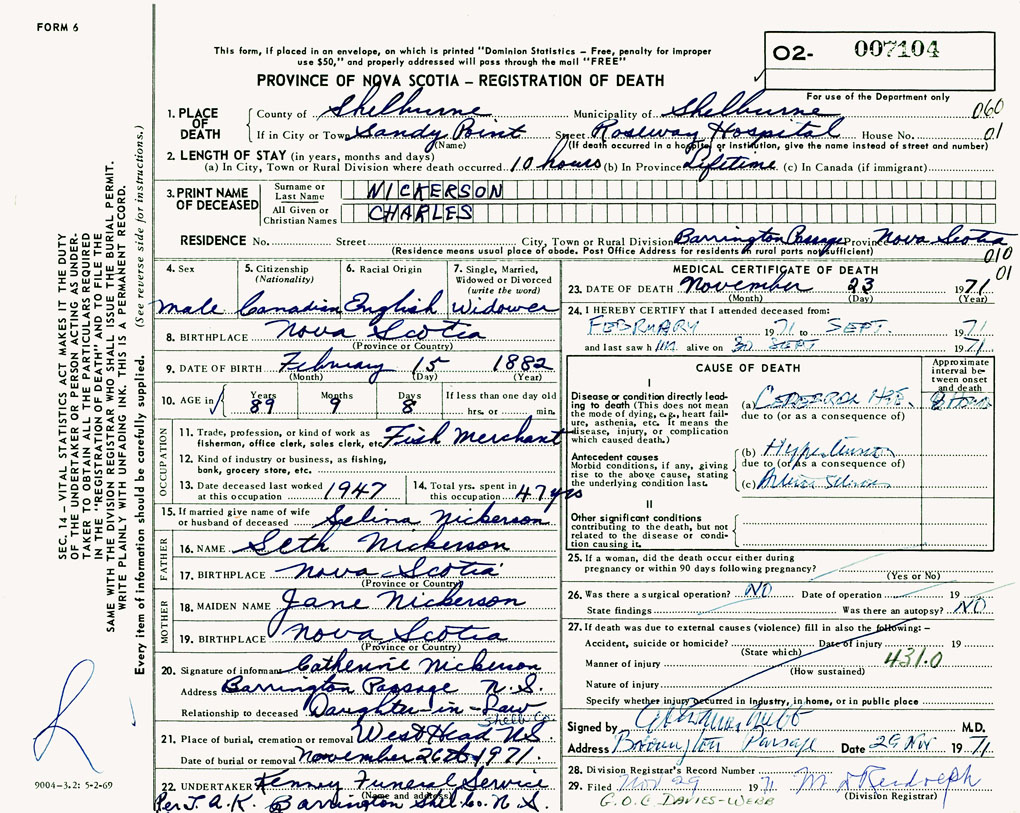 FORM 6
This form, if placed in an envelope, on which is printed "Dominion Statistics – Free, penalty for improper
use $50," and properly addressed will pass through the mail "FREE"
PROVINCE OF NOVA SCOTIA – REGISTRATION OF DEATH
O2- 007104
For use of the Department only
1. PLACE OF DEATH
County of Shelburne Municipality of Shelburne 060
If in City or Town Sandy Point Street Roseway Hospital House No. 01
(Name) (If death occurred in a hospital or institution, give the name instead of street and number)
2. LENGTH OF STAY (in years, months and days)
(a) In City, Town or Rural Division where death occurred 10 hours (b) In Province Lifetime (c) In Canada (if immigrant)
3. PRINT NAME OF DECEASED
Surname or Last Name NICKERSON
All Given or Christian Names CHARLES
RESIDENCE No. Street City, Town or Rural Division Barrington Passage Province Nova Scotia
(Residence means usual place of abode. Post Office Address for residents in rural parts not sufficient) 010
01
4. Sex
male
5. Citizenship (Nationality)
Canadian
6. Racial Origin
English
7. Single, Married, Widowed or Divorced (write the word)
Widower
8. BIRTHPLACE Nova Scotia
(Province or Country)
9. DATE OF BIRTH February 15 1882
(Month) (Day) (Year)
10. AGE in Years Months Days If less than one day old
89 9 8 hrs. or min.
OCCUPATION
11. Trade, profession, or kind of work as fisherman, office clerk, sales clerk, etc. Fish Merchant
12. Kind of industry or business, as fishing, bank, grocery store, etc.
13. Date deceased last worked at this occupation 1947
14. Total yrs. spent in this occupation 47 yrs
15. If married give name of wife or husband of deceased Selina Nickerson
FATHER
16. NAME Seth Nickerson
17. BIRTHPLACE Nova Scotia
(Province or Country)
MOTHER
18. MAIDEN NAME Jane Nickerson
19. BIRTHPLACE Nova Scotia
(Province or Country)
20. Signature of informant Catherine Nickerson
Address Barrington Passage N.S.
Relationship to deceased Daughter-in-Law
Shelb. Co.
21. Place of burial, cremation or removal West Head N.S.
Date of burial or removal November 26th 1971.
22. UNDERTAKER Kenny Funeral Service
(Name and address)
Per. J.A.K. Barrington Shel. Co. N.S.
MEDICAL CERTIFICATE OF DEATH
23. DATE OF DEATH November 23 1971
(Month) (Day) (Year)
24. I HEREBY CERTIFY that I attended deceased from:
FEBRUARY 1971 to SEPT. 1971
and last saw him alive on 30 SEPT 1971
CAUSE OF DEATH
Approximate interval between onset and death
I
Disease or condition directly leading to death (This does not mean the mode of dying, e.g., heart failure, asthenia, etc. It means the disease, injury, or complication which caused death.)
(a) Cerebral
due to (or as a consequence of)
Antecedent causes
Morbid conditions, if any, giving rise to the above cause, stating the underlying condition last.
(b) Hypertension
due to (or as a consequence of)
(c)
II
Other significant conditions contributing to the death, but not related to the disease or condition causing it.
25. If a woman, did the death occur either during pregnancy or within 90 days following pregnancy?
(Yes or No)
26. Was there a surgical operation? NO Date of operation 19
State findings Was there an autopsy? NO
27. If death was due to external causes (violence) fill in also the following: –
Accident, suicide or homicide? Date of injury 19
(State which)
Manner of injury 431.0
(How sustained)
Nature of injury
Specify whether injury occurred in industry, in home, or in public place
Signed by M.D.
Address Barrington Passage Date 29 Nov 1971
28. Division Registrar's Record Number
29. Filed Nov 29 1971
(Division Registrar)
G.O.C DAVIES-WEBB
SEC. 14 – VITAL STATISTICS ACT MAKES IT THE DUTY
OF THE UNDERTAKER OR PERSON ACTING AS UNDER-
TAKER TO OBTAIN ALL THE PARTICULARS REQUIRED
IN THE "REGISTRATION OF DEATH" AND TO FILE THE
SAME WITH THE DIVISION REGISTRAR WHO SHALL ISSUE THE BURIAL PERMIT.
WRITE PLAINLY WITH UNFADING INK. THIS IS A PERMANENT RECORD.
Every item of information should be carefully supplied. (See reverse side for instructions.)
9004-3.2: 5-2-69